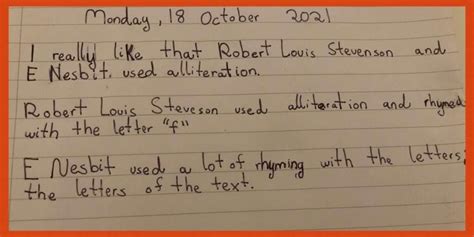 Monday, 18 October 2021
I really like that Robert Louis Stevenson and
E Nesbit. used alliteration.
Robert Louis Steveson used alliteration and rhymed
with the letter "f"
E Nesbit used a lot of rhyming with the letters;
the letters of the text.